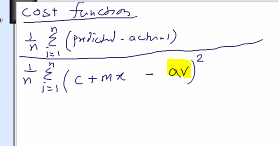 cost function
1/n Σ i=1 n (predicted - actual)
1/n Σ i=1 n (c + mx - av)²